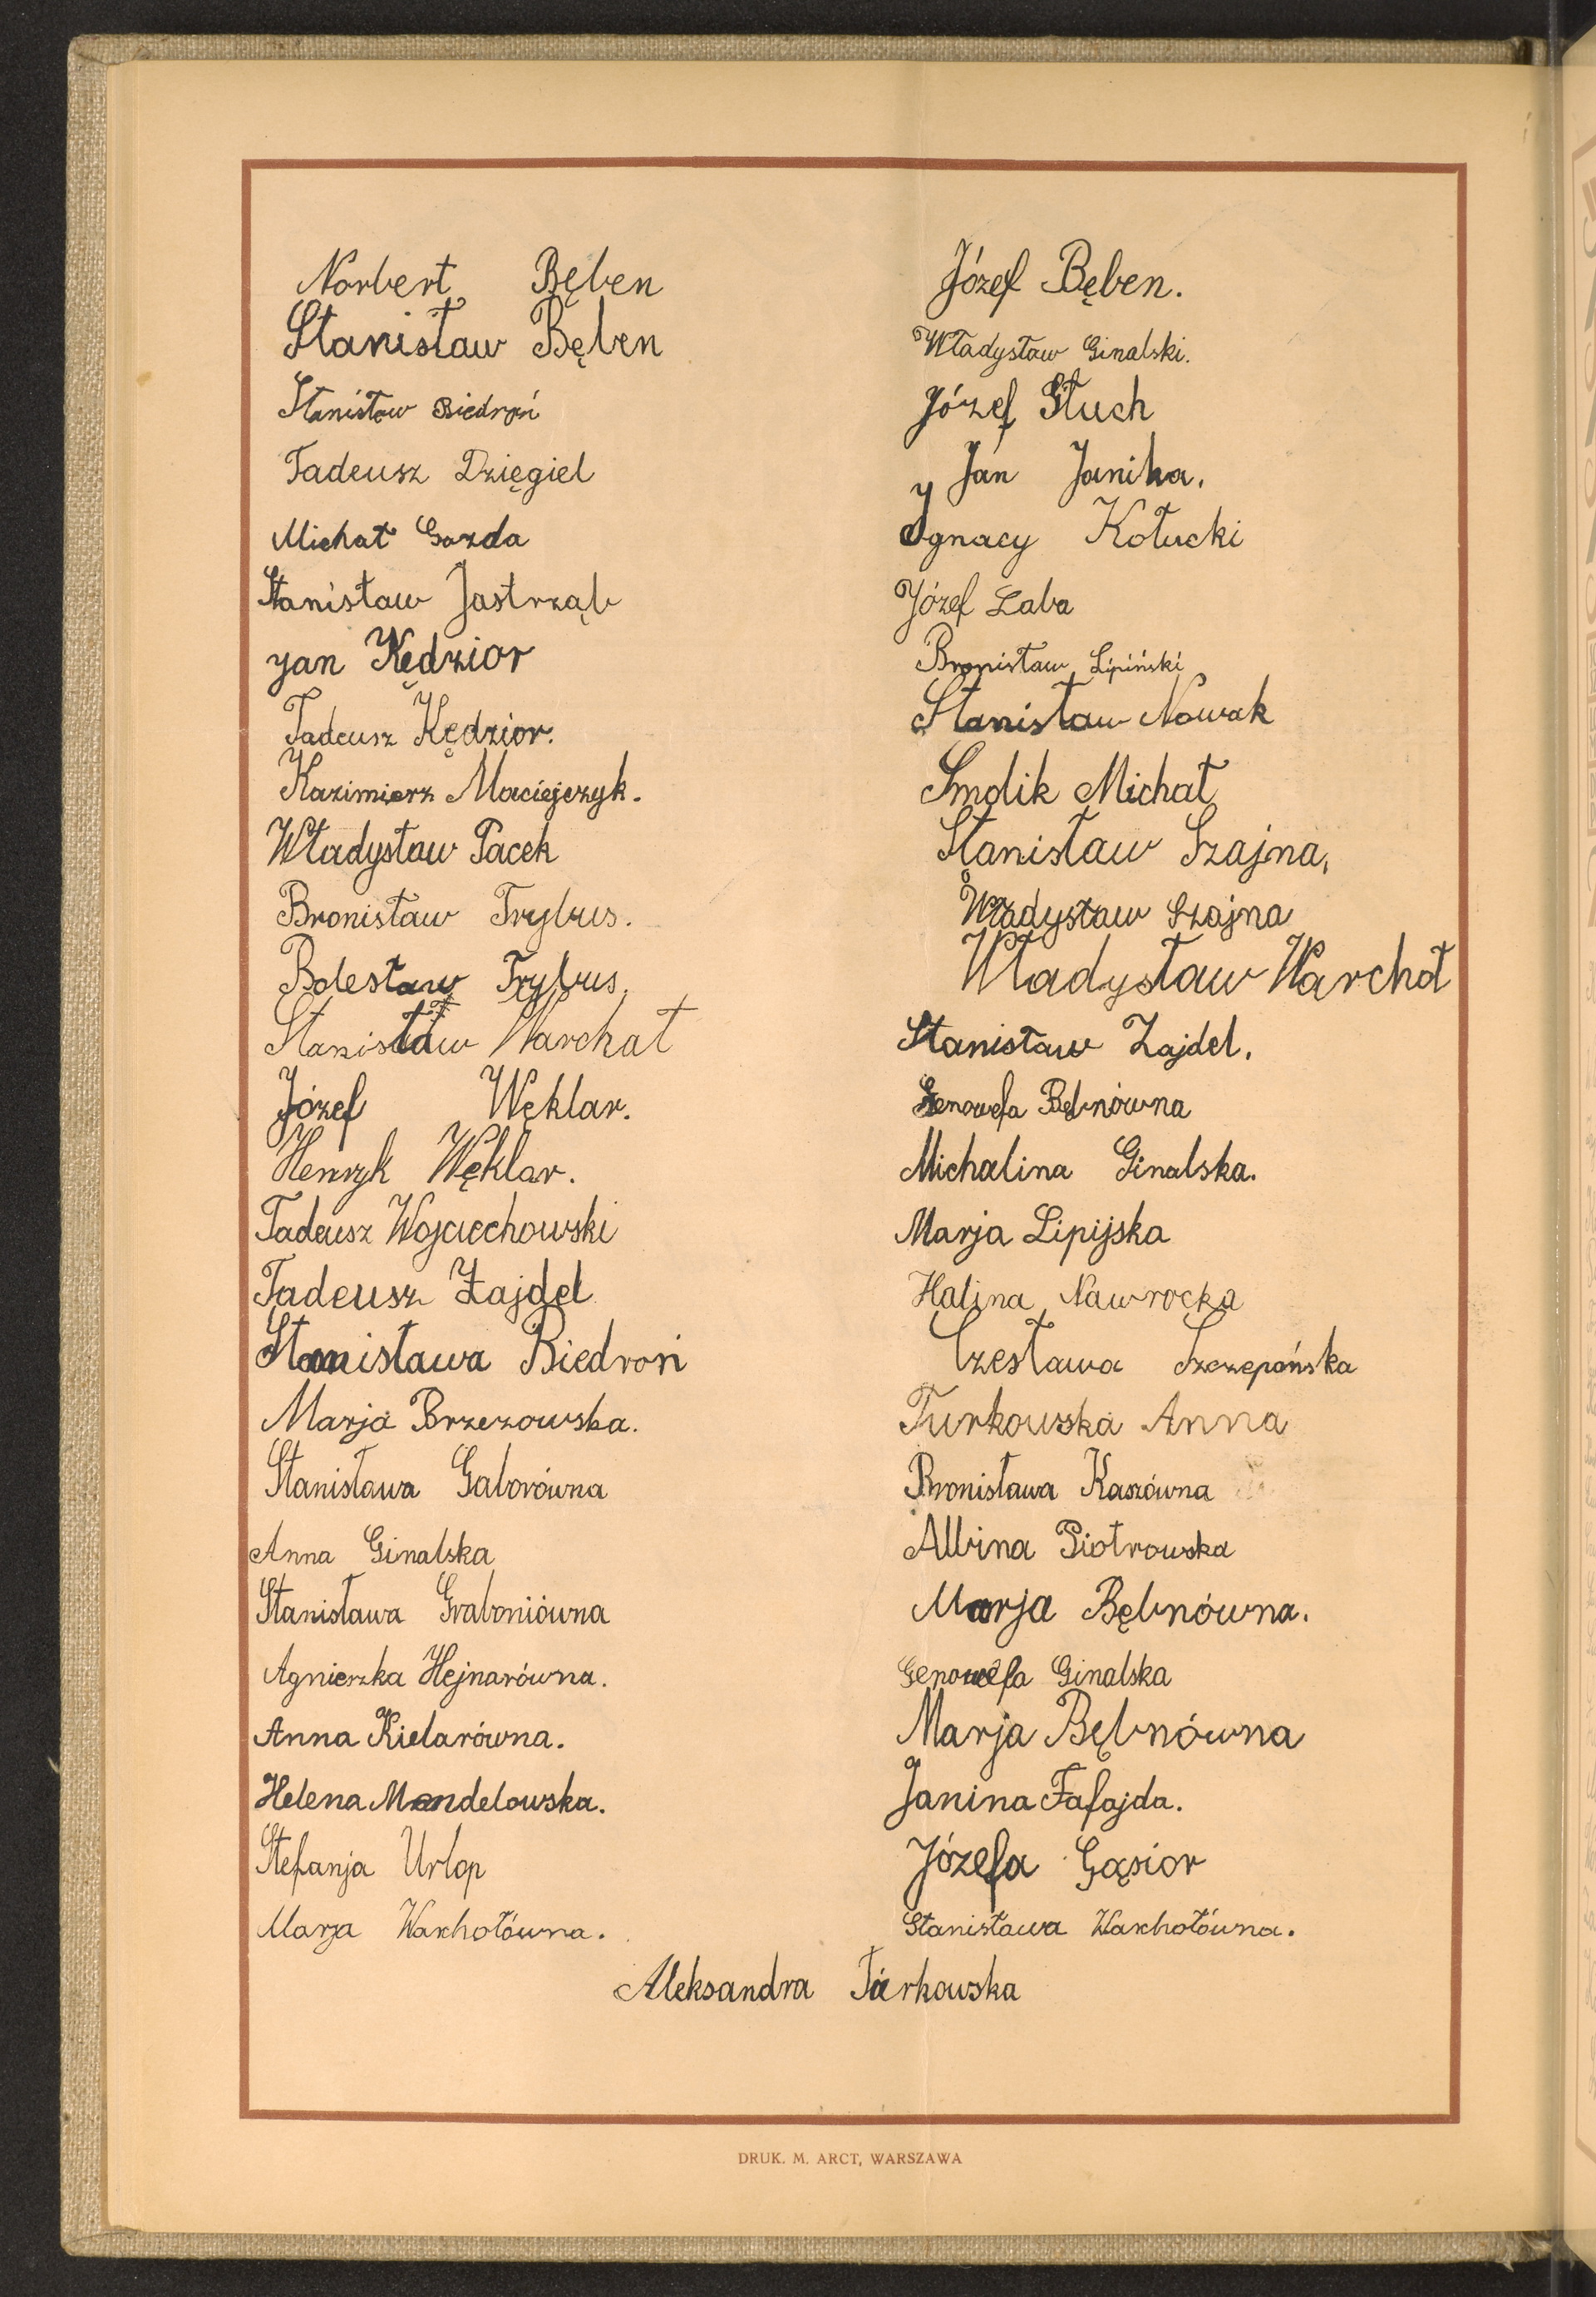 Norbert Bęben
Stanisław Bęben
Stanisław Biedroń
Tadeusz Dzięgiel
Michał Gazda
Stanisław Jastrząb
Jan Kędzior
Tadeusz Kędzior.
Kazimierz Maciejczyk.
Władysław Pacek
Bronisław Trybus.
Bolesław Trybus.
Stanisław Warchał
Józef Węklar.
Henryk Węklar.
Tadeusz Wojciechowski
Tadeusz Zajdel
Stanisława Biedroń
Marja Brzezowska.
Stanisława Gaborówna
Anna Ginalska
Stanisława Graboniówna
Agnieszka Hejnarówna.
Anna Kielarówna.
Helena Mendelowska.
Stefanja Urlop
Marja Warchołówna.
Józef Bęben.
Władysław Ginalski.
Józef Głuch
Jan Janika.
Ignacy Kołucki
Józef Łaba
Bronisław Lipiński
Stanisław Nowak
Smolik Michał
Stanisław Szajna,
Władysław Szajna
Władysław Warchoł
Stanisław Zajdel.
Genowefa Bębnówna
Michalina Ginalska.
Marja Lipijska
Halina Nawrocka
Czesława Szczepańska
Turkowska Anna
Bronisława Kaszówna
Albina Piotrowska
Marja Bębnówna.
Genowefa Ginalska
Marja Bębnówna
Janina Fafajda.
Józefa Gąsior
Stanisława Warchołówna.
Aleksandra
DRUK. M. ARCT, WARSZAWA